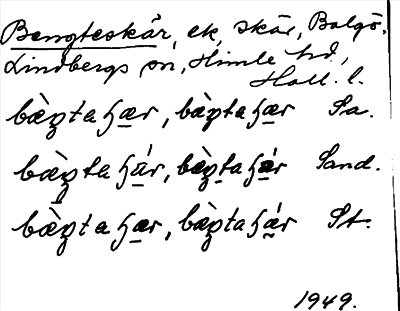 Bengteskär, ek, skär, Balgö,
Lindbergs sn, Himle hd,
Hall. l.
bæ̀ŋtaʃær, bæ̀ŋtaʃær Sa.
bæ̀ŋtaʃǽr, bæ̀ŋtaʃǽr Sand.
bæ̀ŋtaʃær, bæ̀ŋtaʃǽr St.
1949.